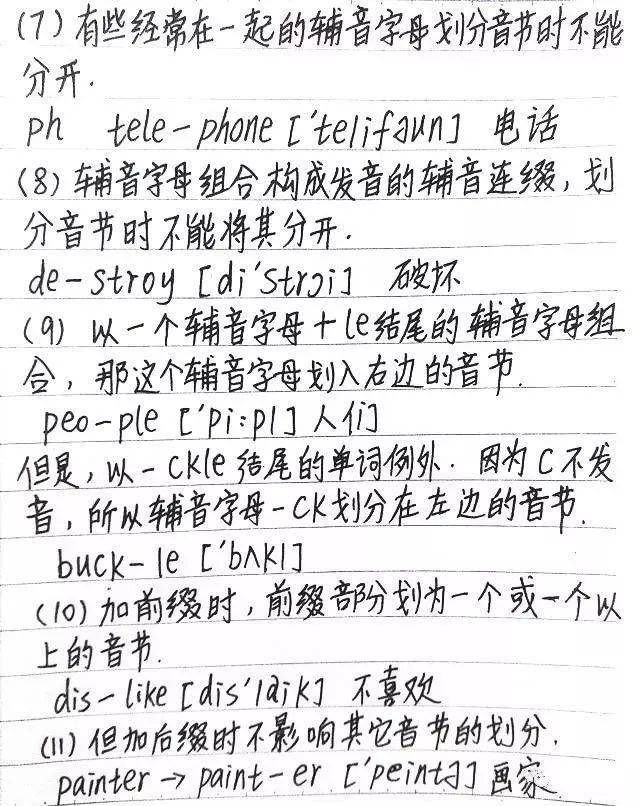 (7) 有些经常在一起的辅音字母划分音节时不能
分开.
ph tele-phone ['telifəun] 电话
(8) 辅音字母组合构成发音的辅音连缀, 划
分音节时不能将其分开.
de-stroy [di'strɔi] 破坏
(9) 以一个辅音字母+le结尾的辅音字母组
合, 那这个辅音字母划入右边的音节.
peo-ple ['pi:pl] 人们
但是, 以-ckle结尾的单词例外. 因为C不发
音, 所以辅音字母-CK划分在左边的音节.
buck-le ['bʌkl]
(10) 加前缀时, 前缀部分划为一个或一个以
上的音节.
dis-like [dis'laik] 不喜欢
(11) 但加后缀时不影响其它音节的划分.
painter → paint-er ['peintə] 画家